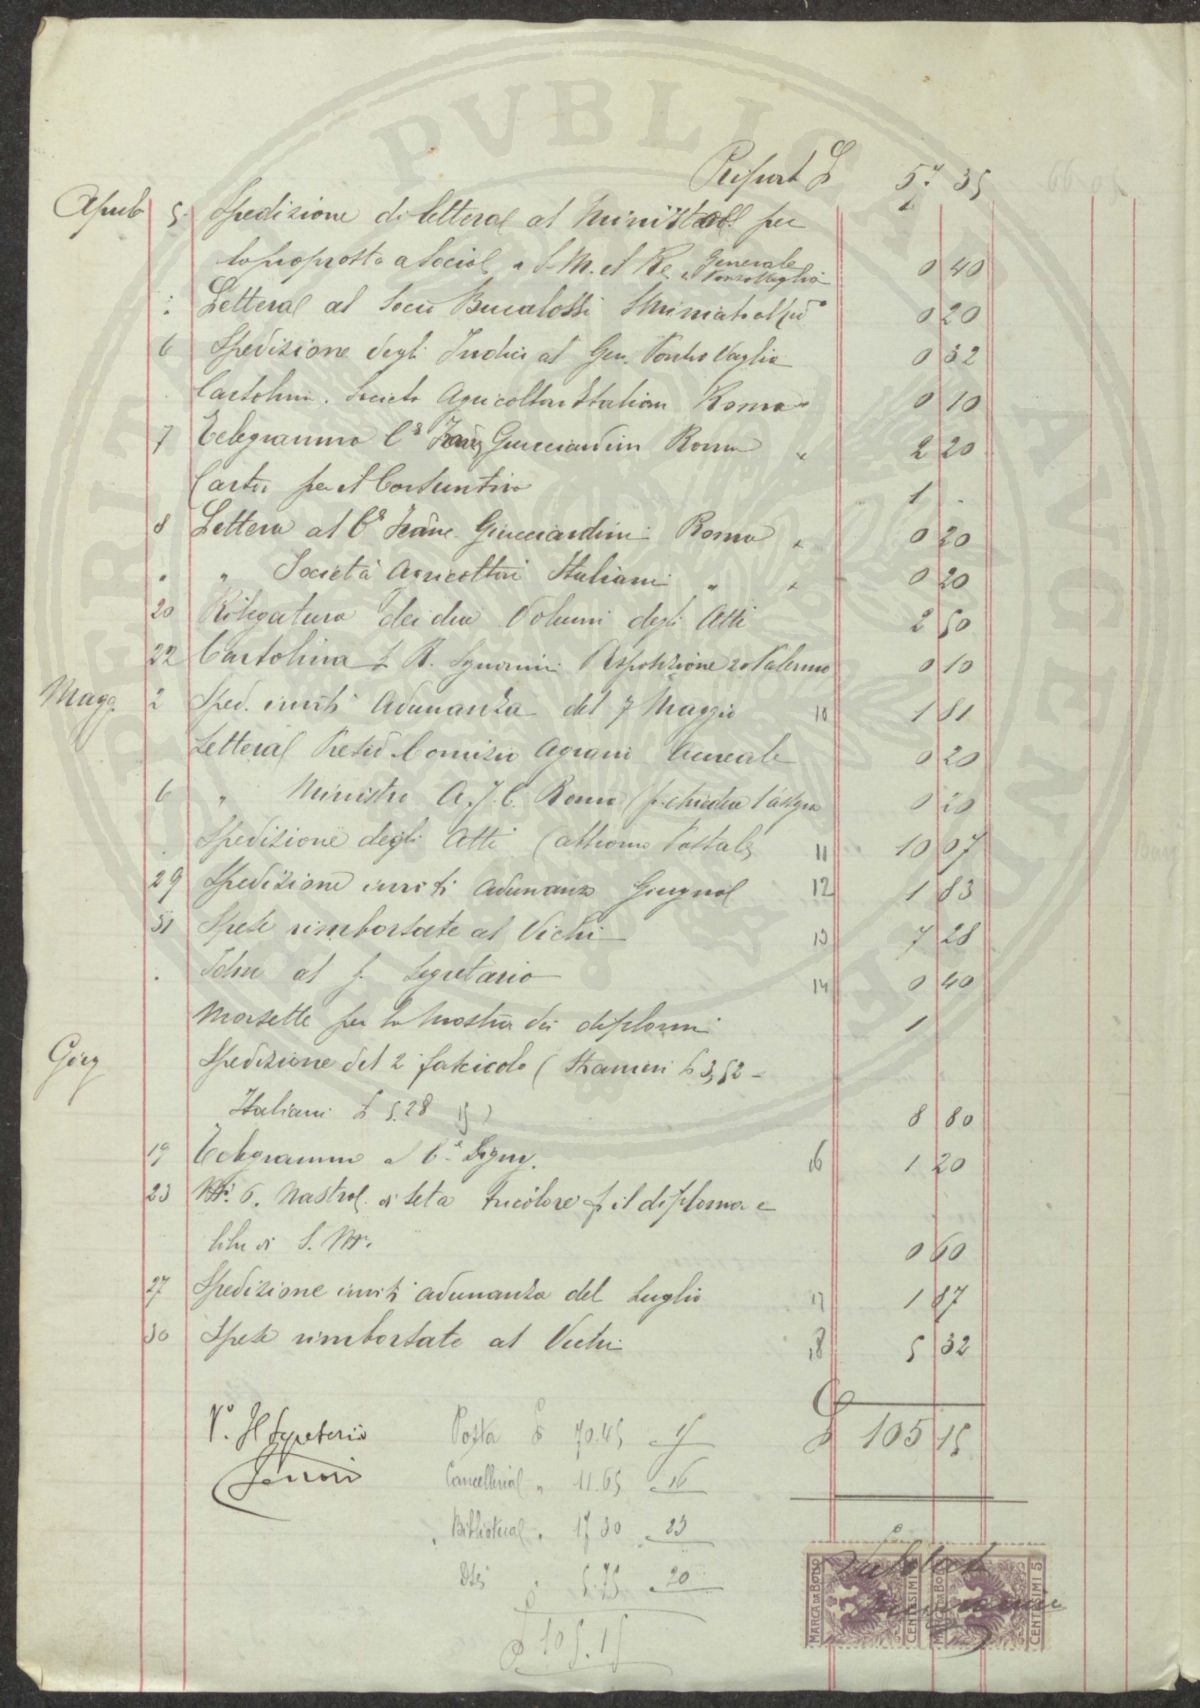 Riport £ 57. 35
Aprile 5. Spedizione di lettera al Ministro per
la proposta a Socio S. M. il Re, e Generale Ponzo Vaglia 0 40
Lettera al Socio Bucalossi S Miniato al Tedº 0 20
6 Spedizione degli Indici al Gen. Ponzo Vaglia 0 32
Cartolina. Società Agricoltori Italiani Roma 0 10
7 Telegramma Cte Franc Guicciardini Roma " 2 20
Carta per il Cosentino 1 .
8 Lettera al Cte Franc. Guicciardini Roma " 0 20
" " Società Agricoltori Italiani " " 0 20
20 Rilegatura dei due Volumi degli Atti 2 50
22 Cartolina R. Esposizione Palermo 0 10
Magg. 2 Sped. inviti Adunanza del 7 Maggio 10 1 81
Lettera Comizio Agrario 0 20
6 " Ministro A. I. C. Roma 0 20
Spedizione degli Atti Postale 11 10 07
29 Spedizione inviti adunanza Giugno 12 1 83
31 Spese rimborsate al Vichi 13 7 28
. al f. Segretario 14 0 40
Morsette per la mostra dei diplomi 1
Giug Spedizione del 2 fascicolo ( Stranieri £ 3,52 -
Italiani £ 5.28 15 ) 8 80
19 Telegramma 16 1 20
23 M. 6. Nastro di seta tricolore p il diploma e
libri di S. M. 0 60
27 Spedizione inviti adunanza del Luglio 17 1 87
30 Spese rimborsate al Vichi 18 5 32
Vº. Il Segretario £ 105 15
Posta £ 70.45 15
Cancelleria " 11.65 16
Biblioteca " 17 30 23
5.75 20
£ 105.15
MARCA DA BOLLO CENTESIMI 5 MARCA DA BOLLO CENTESIMI 5